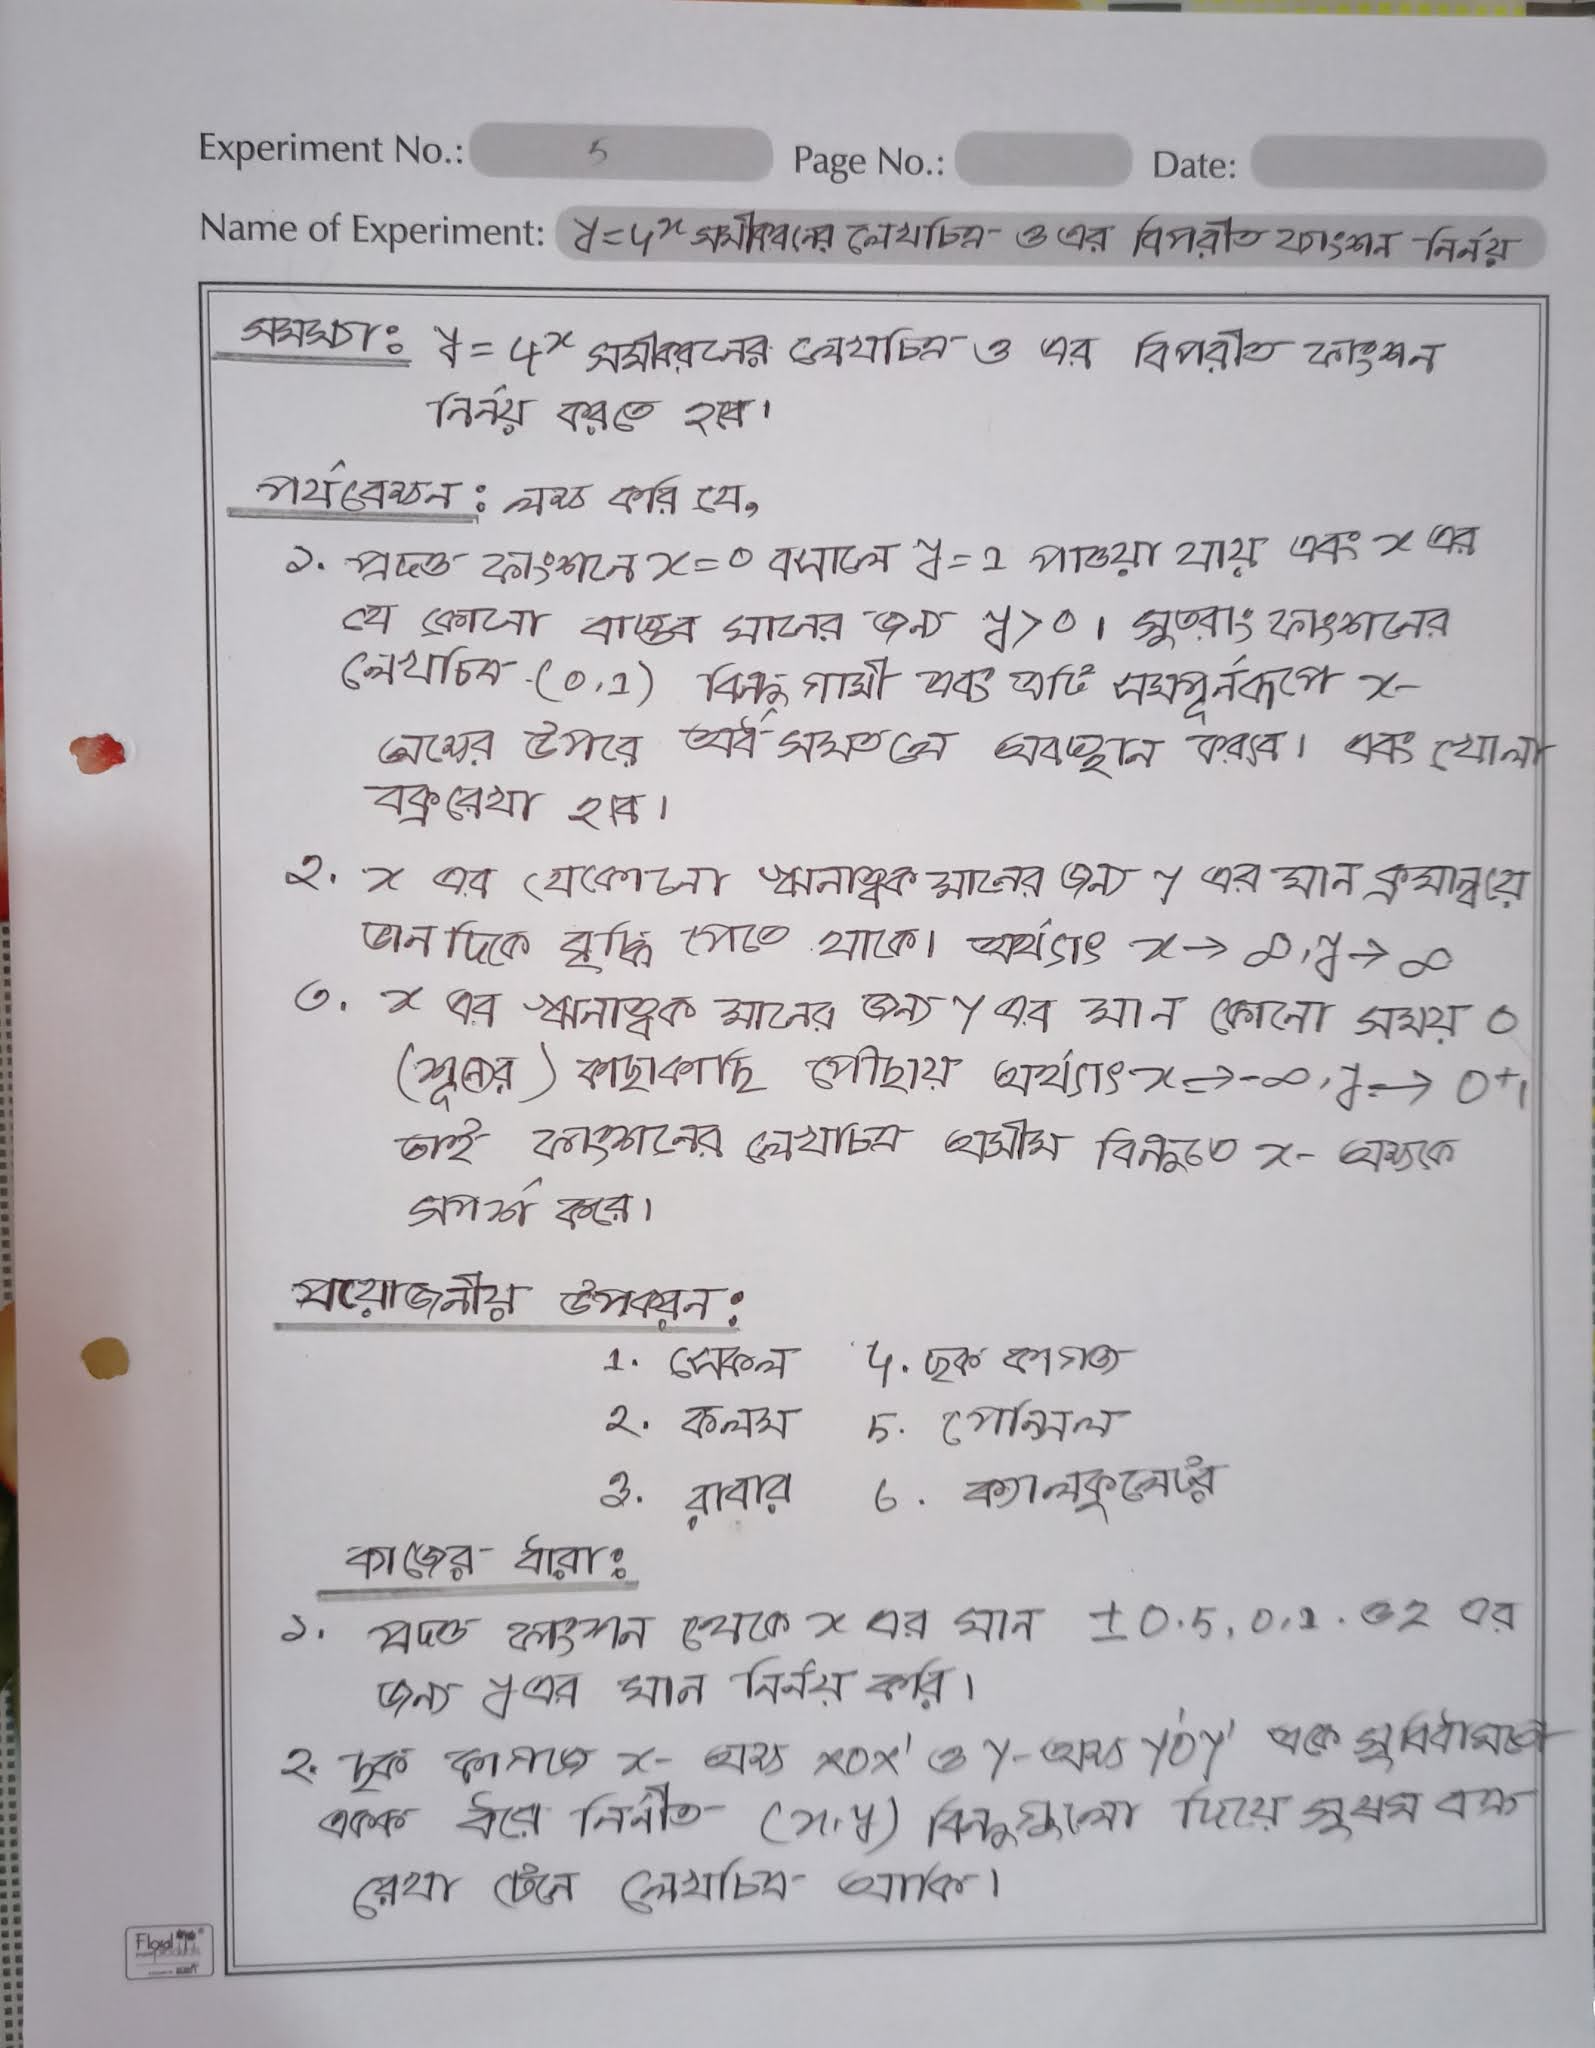 Experiment No.: 5 Page No.: Date:
Name of Experiment: y=4ˣ সমীকরনের লেখচিত্র ও এর বিপরীত ফাংশন নির্নয়
সমস্যা: y = 4ˣ সমীকরনের লেখচিত্র ও এর বিপরীত ফাংশন
নির্নয় করতে হবে।
পর্যবেক্ষন: লক্ষ করি যে,
১. প্রদত্ত ফাংশনে x=0 বসালে y=1 পাওয়া যায় এবং x এর
যে কোনো বাস্তব মানের জন্য y>0। সুতরাং ফাংশনের
লেখচিত্র (0,1) বিন্দু গামী এবং এটি সম্পূর্নরূপে x-
অক্ষের উপরে অর্ধ সমতলে অবস্থান করবে। এবং খোলা
বক্ররেখা হবে।
২. x এর যেকোনো ঋনাত্বক মানের জন্য y এর মান ক্রমান্বয়ে
ডান দিকে বৃদ্ধি পেতে থাকে। অর্থ্যাৎ x→ ∞, y→ ∞
৩. x এর ঋনাত্বক মানের জন্য y এর মান কোনো সময় 0
(শূন্যের) কাছাকাছি পৌছায় অর্থ্যাৎ x→-∞, y→ 0+।
তাই ফাংশনের লেখচিত্র অসীম বিন্দুতে x- অক্ষকে
স্পর্শ করে।
প্রয়োজনীয় উপকরন:
1. স্কেল 4. ছক কাগজ
2. কলম 5. পেন্সিল
3. রাবার 6. ক্যালকুলেটর
কাজের ধারা:
১. প্রদত্ত ফাংশন থেকে x এর মান ±0.5, 0,1. ও2 এর
জন্য y এর মান নির্নয় করি।
২. ছক কাগজে x- অক্ষ XOX' ও y-অক্ষ Y'OY' একে সুবিধামতো
একক ধরে নির্নীত (x,y) বিন্দুগুলো দিয়ে সুষম বক্র
রেখা টেনে লেখচিত্র আকি।
Floral